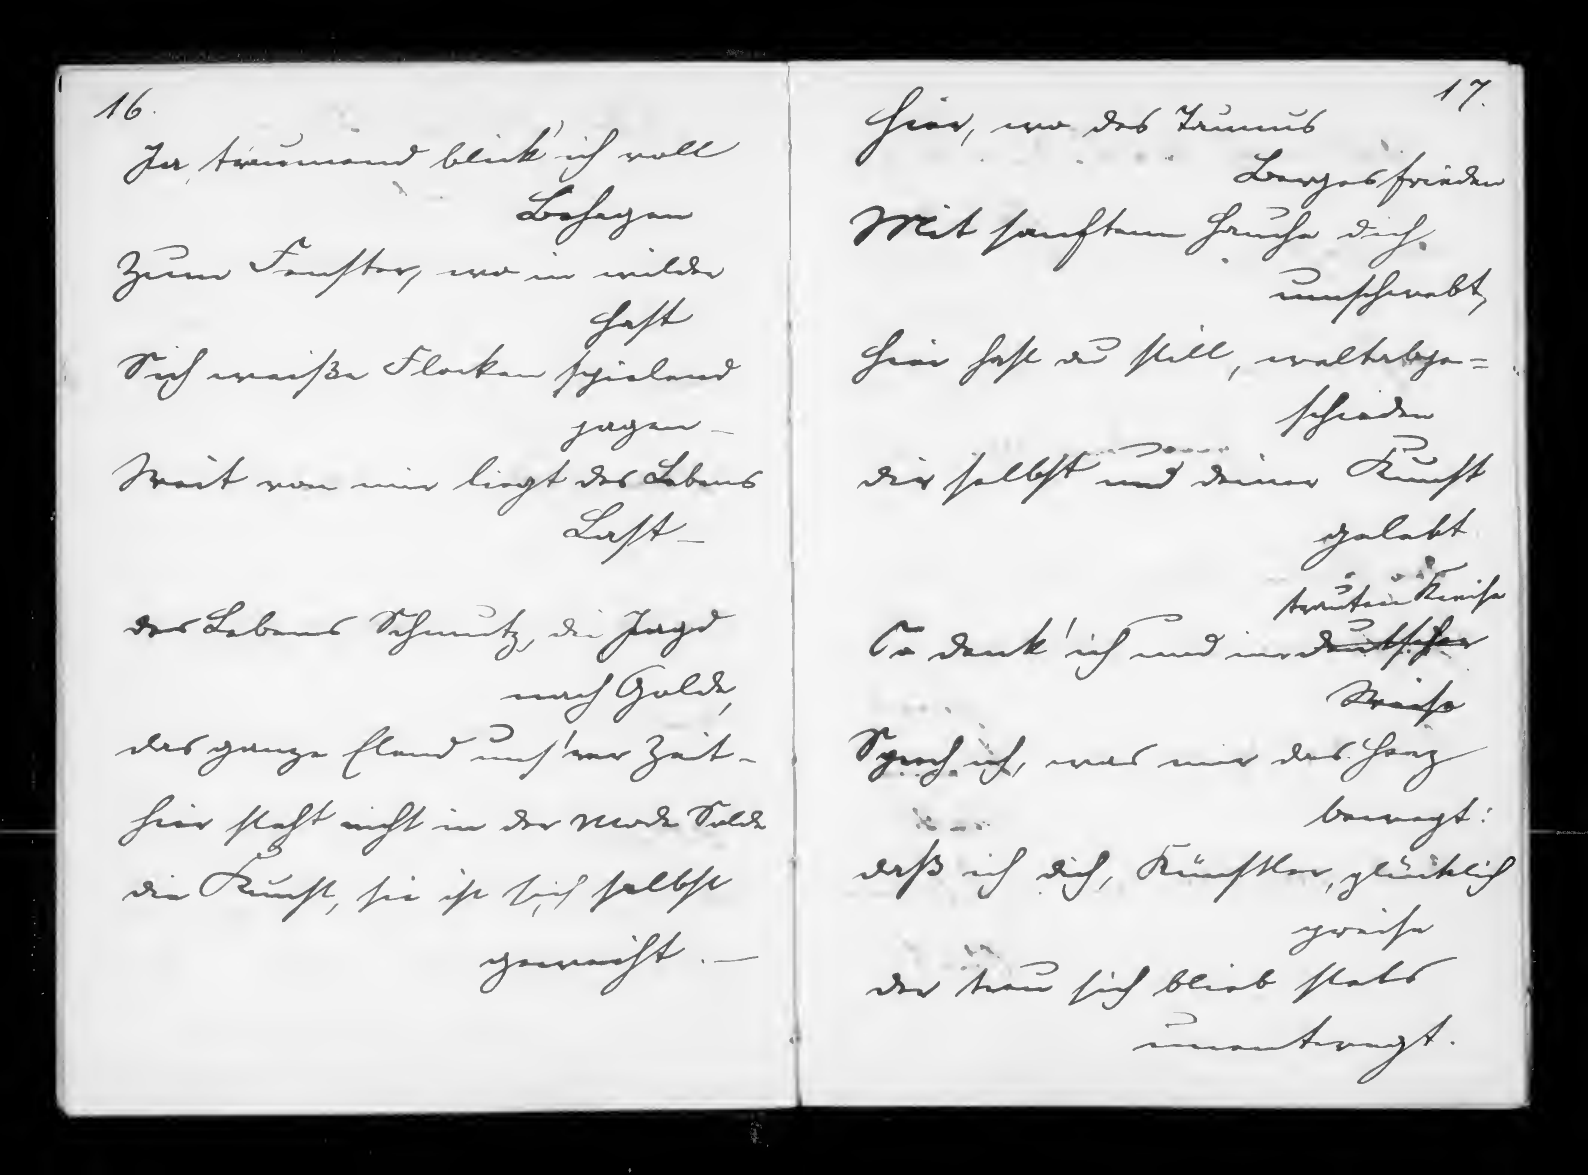 16.
Ja, träumend blick' ich voll
Behagen
Zum Fenster, wo in wilder
Hast
Sich weiße Flocken spielend
jagen –
Weit von mir liegt des Lebens
Last –
des Lebens Schmutz, die Jagd
nach Golde,
das ganze Elend uns'rer Zeit –
hier steht nicht in der Mode Solde
die Kunst, sie ist sich selbst
geweiht. –
17.
Hier, wo des Taunus
Bergesfrieden
Mit sanftem Hauche dich
umschwebt,
Hier hast du still, weltabge=
schieden
dir selbst und deiner Kunst
gelebt
trauten Kreise
So denk' ich und im deutscher
Weise
Sprech ich, was mir das Herz
bewegt:
daß ich dich, Künstler, glücklich
preise
der treu sich blieb stets
unentwegt.